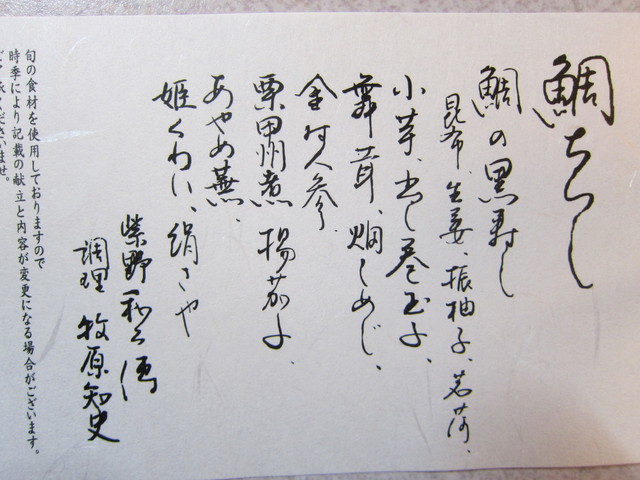 鯛ちらし
鯛の黒寿し
昆布、生姜、振柚子、茗荷、
小芋、出し巻玉子、
舞茸、畑しめじ、
金時人参、
栗甲州煮、揚茄子、
あやめ蕪、
姫くわい、絹さや
紫野和久傳
調理 牧原知史
旬の食材を使用しておりますので
時季により記載の献立と内容が変更になる場合がございます。
ご了承くださいませ。